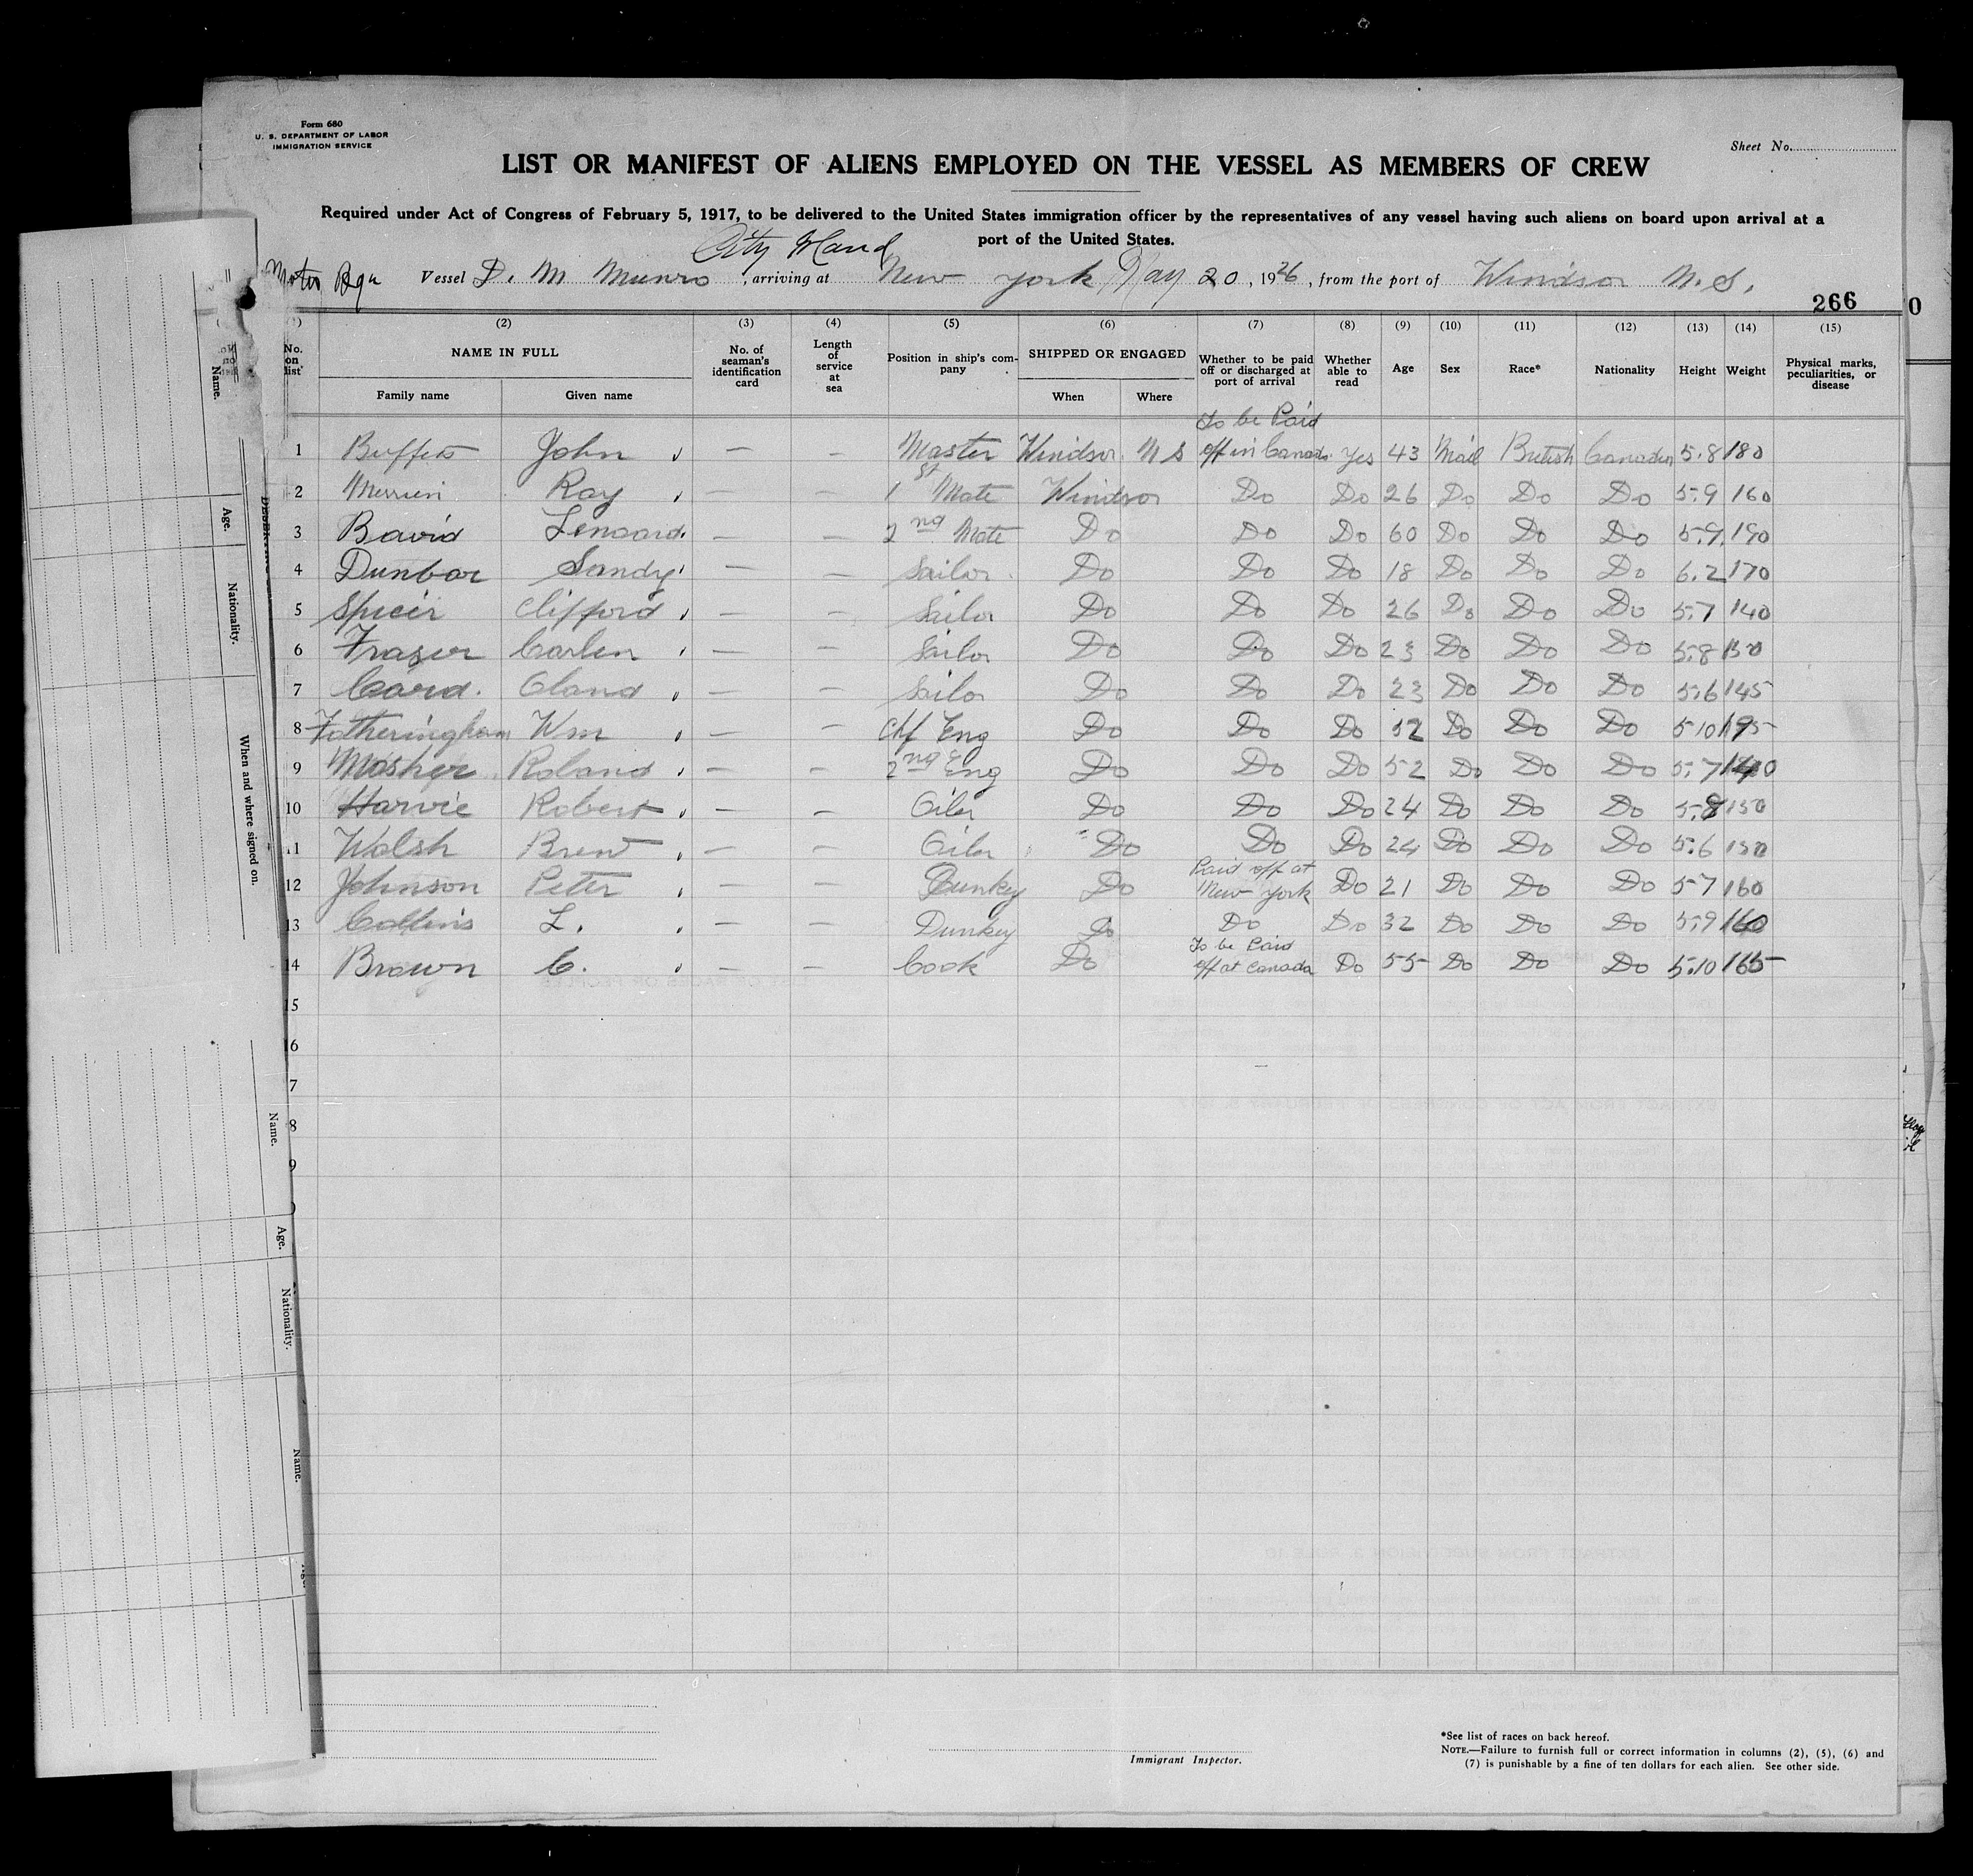 Form 680
U. S. DEPARTMENT OF LABOR
IMMIGRATION SERVICE
Sheet No.
LIST OR MANIFEST OF ALIENS EMPLOYED ON THE VESSEL AS MEMBERS OF CREW
Required under Act of Congress of February 5, 1917, to be delivered to the United States immigration officer by the representatives of any vessel having such aliens on board upon arrival at a
port of the United States.
City Iland
Vessel D. M Munro, arriving at New York May 20, 1926, from the port of Windsor N. S.
266
(2) (3) (4) (5) (6) (7) (8) (9) (10) (11) (12) (13) (14) (15)
No. on list NAME IN FULL Family name Given name No. of seaman's identification card Length of service at sea Position in ship's company SHIPPED OR ENGAGED When Where Whether to be paid off or discharged at port of arrival Whether able to read Age Sex Race* Nationality Height Weight Physical marks, peculiarities, or disease
To be Paid
1 John — — Master Windsor N S off in Canada Yes 43 Mail British Canadian 5.8 180
2 Ray — — 1st Mate Windsor Do Do 26 Do Do Do 5.9 160
3 Bavid Lenoard — — 2nd Mate Do Do Do 60 Do Do Do 5.9. 190
4 Dunbar Sandy — — Sailor Do Do Do 18 Do Do Do 6.2 170
5 Clifford — — Sailor Do Do Do 26 Do Do Do 5.7 140
6 Fraser Carlen — — Sailor Do Do Do 23 Do Do Do 5.8
7 Card. Oland — — Sailor Do Do Do 23 Do Do Do 5.6 145
8 Fotheringham Wm — — Chf Eng Do Do Do Do Do Do 5 10 195
9 Mosher Roland — — 2nd Eng Do Do Do 52 Do Do Do 5.7 140
10 Harvie Robert — — Oiler Do Do Do 24 Do Do Do 5.8 150
11 Walsh — — Oiler Do Do Do 24 Do Do Do 5.6 150
Paid off at
12 Johnson Peter — — Dunkey Do New York Do 21 Do Do Do 5-7 160
13 Collins L. — — Dunkey Do Do Do 32 Do Do Do 5.9 160
To be Paid
14 Brown C. — — Cook Do off at Canada Do 55 Do Do Do 5.10 165
15
16
7
8
9
Name.
Age.
Nationality.
When and where signed on.
Name.
Age.
Nationality.
Name.
Immigrant Inspector.
*See list of races on back hereof.
NOTE.—Failure to furnish full or correct information in columns (2), (5), (6) and
(7) is punishable by a fine of ten dollars for each alien. See other side.